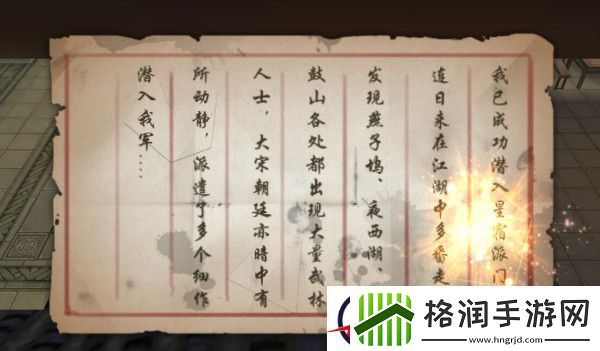 我已成功潜入星宿派门
连日来在江湖中多番走
发现燕子坞、夜西湖、
鼓山各处都出现大量武林
人士，大宋朝廷亦暗中有
所动静，派遣了多个细作
潜入我军....
格润手游网
www.hngrjd.com